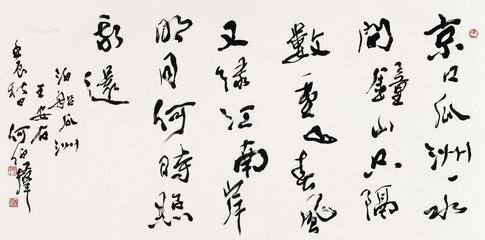 京口瓜洲一水
間鐘山只隔
數重山春風
又綠江南岸
明月何時照
我還
泊船瓜洲
王安石
壬辰秋日何